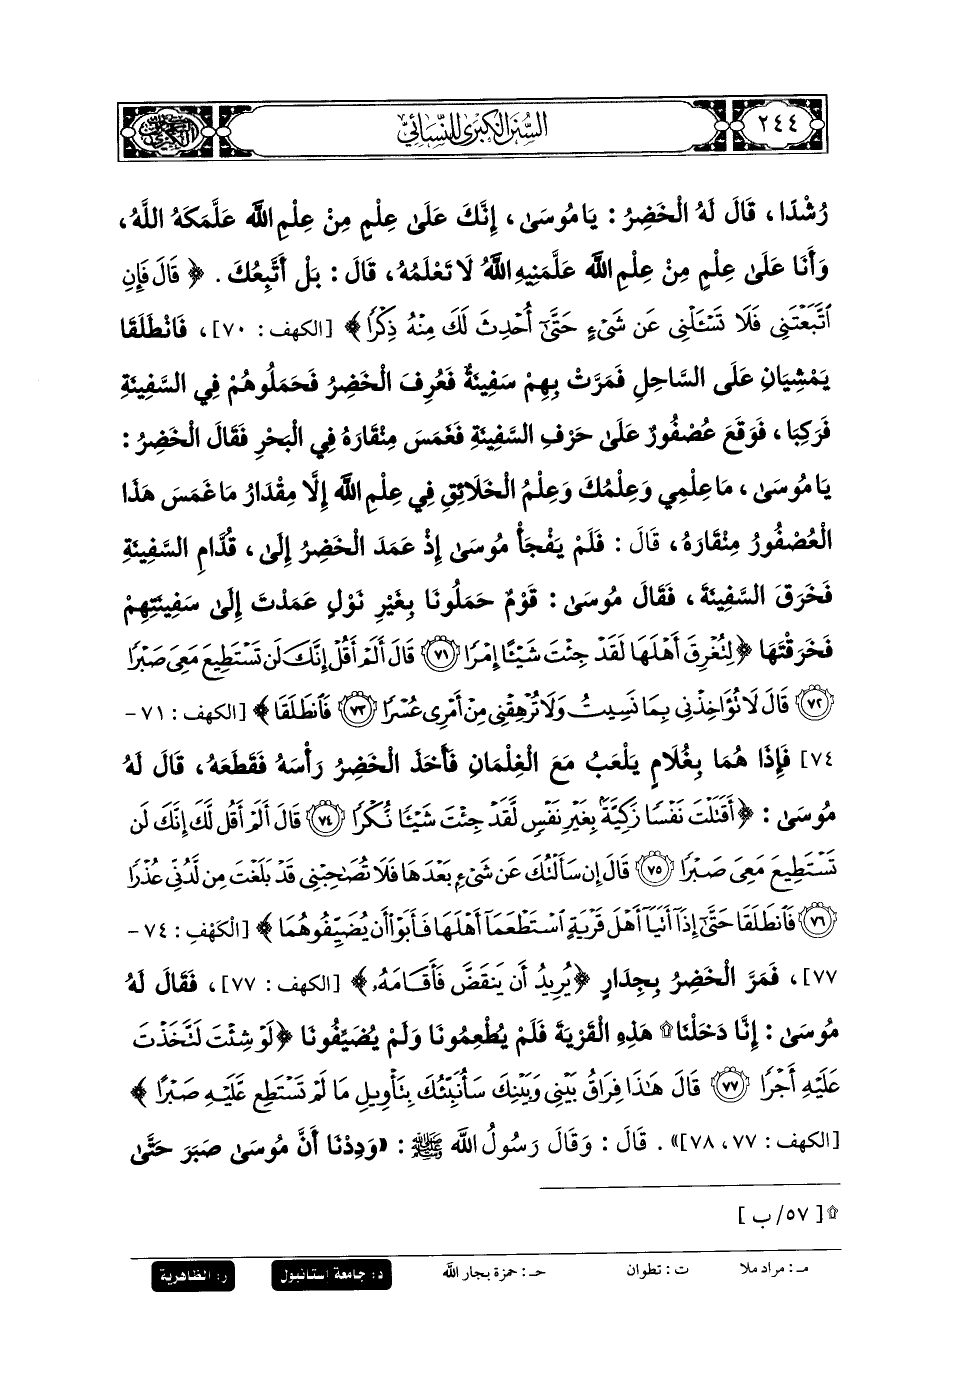 ٢٤٤
السُّنَنُ الْكُبْرَى لِلنَّسَائِيِّ
رُشْدًا، قَالَ لَهُ الْخَضِرُ : يَا مُوسَىٰ، إِنَّكَ عَلَىٰ عِلْمٍ مِنْ عِلْمِ اللَّهِ عَلَّمَكَهُ اللَّهُ،
وَأَنَا عَلَىٰ عِلْمٍ مِنْ عِلْمِ اللَّهِ عَلَّمَنِيهِ اللَّهُ لَا تَعْلَمُهُ، قَالَ : بَلْ أَتَّبِعُكَ . ﴿ قَالَ فَإِنِ
ٱتَّبَعْتَنِى فَلَا تَسْـَٔلْنِى عَن شَىْءٍ حَتَّىٰٓ أُحْدِثَ لَكَ مِنْهُ ذِكْرًا ﴾ [الكهف : ٧٠]، فَانْطَلَقَا
يَمْشِيَانِ عَلَى السَّاحِلِ فَمَرَّتْ بِهِمْ سَفِينَةٌ فَعُرِفَ الْخَضِرُ فَحَمَلُوهُمْ فِي السَّفِينَةِ
فَرَكِبَا، فَوَقَعَ عُصْفُورٌ عَلَىٰ حَرْفِ السَّفِينَةِ فَغَمَسَ مِنْقَارَهُ فِي الْبَحْرِ فَقَالَ الْخَضِرُ :
يَا مُوسَىٰ، مَا عِلْمِي وَعِلْمُكَ وَعِلْمُ الْخَلَائِقِ فِي عِلْمِ اللَّهِ إِلَّا مِقْدَارُ مَا غَمَسَ هَذَا
الْعُصْفُورُ مِنْقَارَهُ، قَالَ : فَلَمْ يَفْجَأْ مُوسَىٰ إِذْ عَمَدَ الْخَضِرُ إِلَىٰ، قُدَّامِ السَّفِينَةِ
فَخَرَقَ السَّفِينَةَ، فَقَالَ مُوسَىٰ : قَوْمٌ حَمَلُونَا بِغَيْرِ نَوْلٍ عَمَدْتَ إِلَىٰ سَفِينَتِهِمْ
فَخَرَقْتَهَا ﴿ لِتُغْرِقَ أَهْلَهَا لَقَدْ جِئْتَ شَيْـًٔا إِمْرًا ٧١ قَالَ أَلَمْ أَقُلْ إِنَّكَ لَن تَسْتَطِيعَ مَعِىَ صَبْرًا
٧٢ قَالَ لَا تُؤَاخِذْنِى بِمَا نَسِيتُ وَلَا تُرْهِقْنِى مِنْ أَمْرِى عُسْرًا ٧٣ فَٱنطَلَقَا ﴾ [الكهف : ٧١ -
٧٤] فَإِذَا هُمَا بِغُلَامٍ يَلْعَبُ مَعَ الْغِلْمَانِ فَأَخَذَ الْخَضِرُ رَأْسَهُ فَقَطَعَهُ، قَالَ لَهُ
مُوسَىٰ : ﴿ أَقَتَلْتَ نَفْسًا زَكِيَّةًۢ بِغَيْرِ نَفْسٍ لَّقَدْ جِئْتَ شَيْـًٔا نُّكْرًا ٧٤ قَالَ أَلَمْ أَقُل لَّكَ إِنَّكَ لَن
تَسْتَطِيعَ مَعِىَ صَبْرًا ٧٥ قَالَ إِن سَأَلْتُكَ عَن شَىْءٍۭ بَعْدَهَا فَلَا تُصَٰحِبْنِى قَدْ بَلَغْتَ مِن لَّدُنِّى عُذْرًا
٧٦ فَٱنطَلَقَا حَتَّىٰٓ إِذَآ أَتَيَآ أَهْلَ قَرْيَةٍ ٱسْتَطْعَمَآ أَهْلَهَا فَأَبَوْا۟ أَن يُضَيِّفُوهُمَا ﴾ [الْكَهْفِ : ٧٤ -
٧٧]، فَمَرَّ الْخَضِرُ بِجِدَارٍ ﴿ يُرِيدُ أَن يَنقَضَّ فَأَقَامَهُۥ ﴾ [الكهف : ٧٧]، فَقَالَ لَهُ
مُوسَىٰ : إِنَّا دَخَلْنَا۩ هَذِهِ الْقَرْيَةَ فَلَمْ يُطْعِمُونَا وَلَمْ يُضَيِّفُونَا ﴿ لَوْ شِئْتَ لَتَّخَذْتَ
عَلَيْهِ أَجْرًا ٧٧ قَالَ هَٰذَا فِرَاقُ بَيْنِى وَبَيْنِكَ سَأُنَبِّئُكَ بِتَأْوِيلِ مَا لَمْ تَسْتَطِع عَّلَيْهِ صَبْرًا ﴾
[الكهف : ٧٧، ٧٨]» . قَالَ : وَقَالَ رَسُولُ اللَّهِ ﷺ : «وَدِدْنَا أَنَّ مُوسَىٰ صَبَرَ حَتَّىٰ
۩ [٥٧/ ب]
مـ : مراد ملا
ت : تطوان
حـ : حمزة بجار الله
د : جامعة إستانبول
ر : الظاهرية